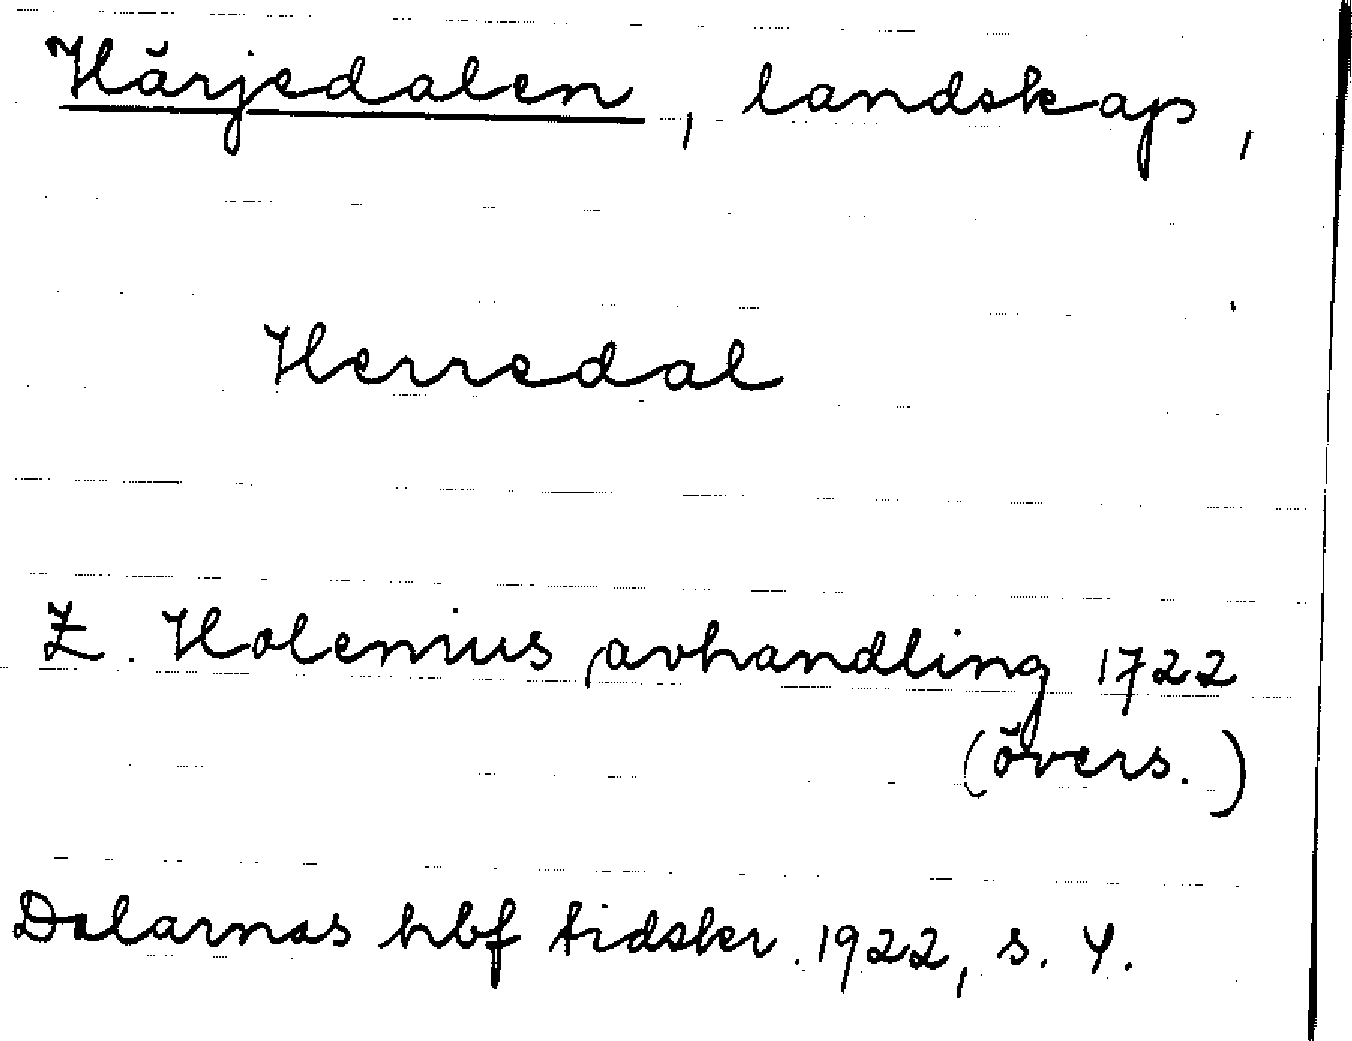 Härjedalen, landskap,
Herredal
Z. Holenius, avhandling 1722
(övers.)
Dalarnas hbf tidskr. 1922, s. 4.